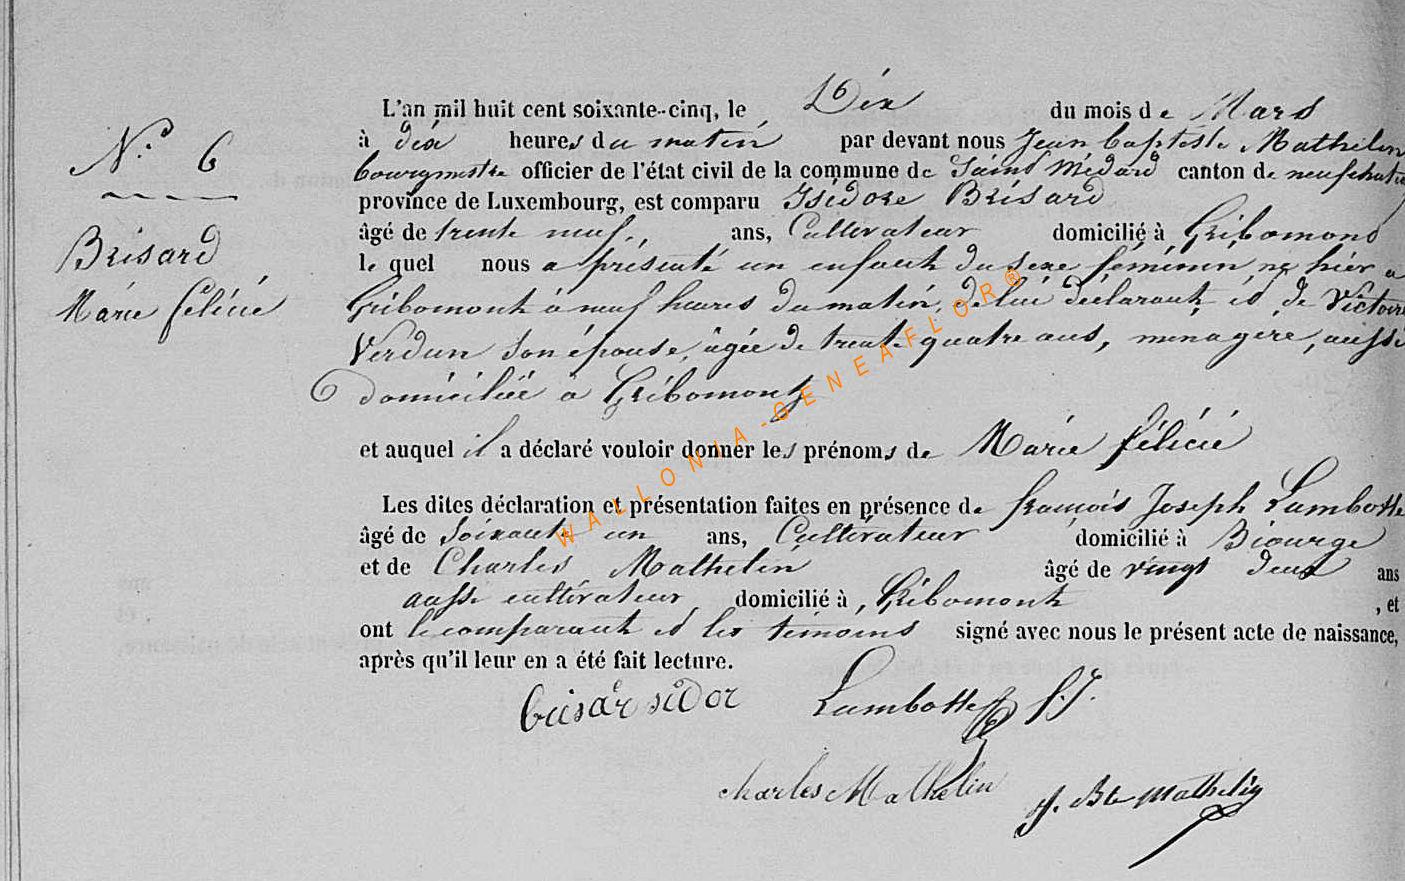 N.° 6
Brisard
Marie Félicie
L'an mil huit cent soixante-cinq, le Dix du mois de Mars
à dix heures du matin par devant nous Jean Baptiste Mathelin
bourgmestre officier de l'état civil de la commune de Saint Médard canton de neufchateau
province de Luxembourg, est comparu Isidore Brisard
âgé de trente neuf ans, Cultivateur domicilié à Gribomont
le quel nous a présenté un enfant du sexe féminin, né hier a
Gribomont à neuf heures du matin, de lui déclarant et de Victoire
Verdun son épouse, âgée de trente quatre ans, menagère, aussi
domiciliée à Gribomont
et auquel il a déclaré vouloir donner les prénoms de Marie Félicie
Les dites déclaration et présentation faites en présence de françois Joseph Lambotte
âgé de Soixante un ans, Cultivateur domicilié à Biourge
et de Charles Mathelin âgé de vingt deux ans
aussi cultivateur domicilié à Gribomont, et
ont le comparant et les témoins signé avec nous le présent acte de naissance,
après qu'il leur en a été fait lecture.
Lambotte f.J.
charles Mathelin
J. Bte Mathelin
WALLONIA-GENEAFLOR®